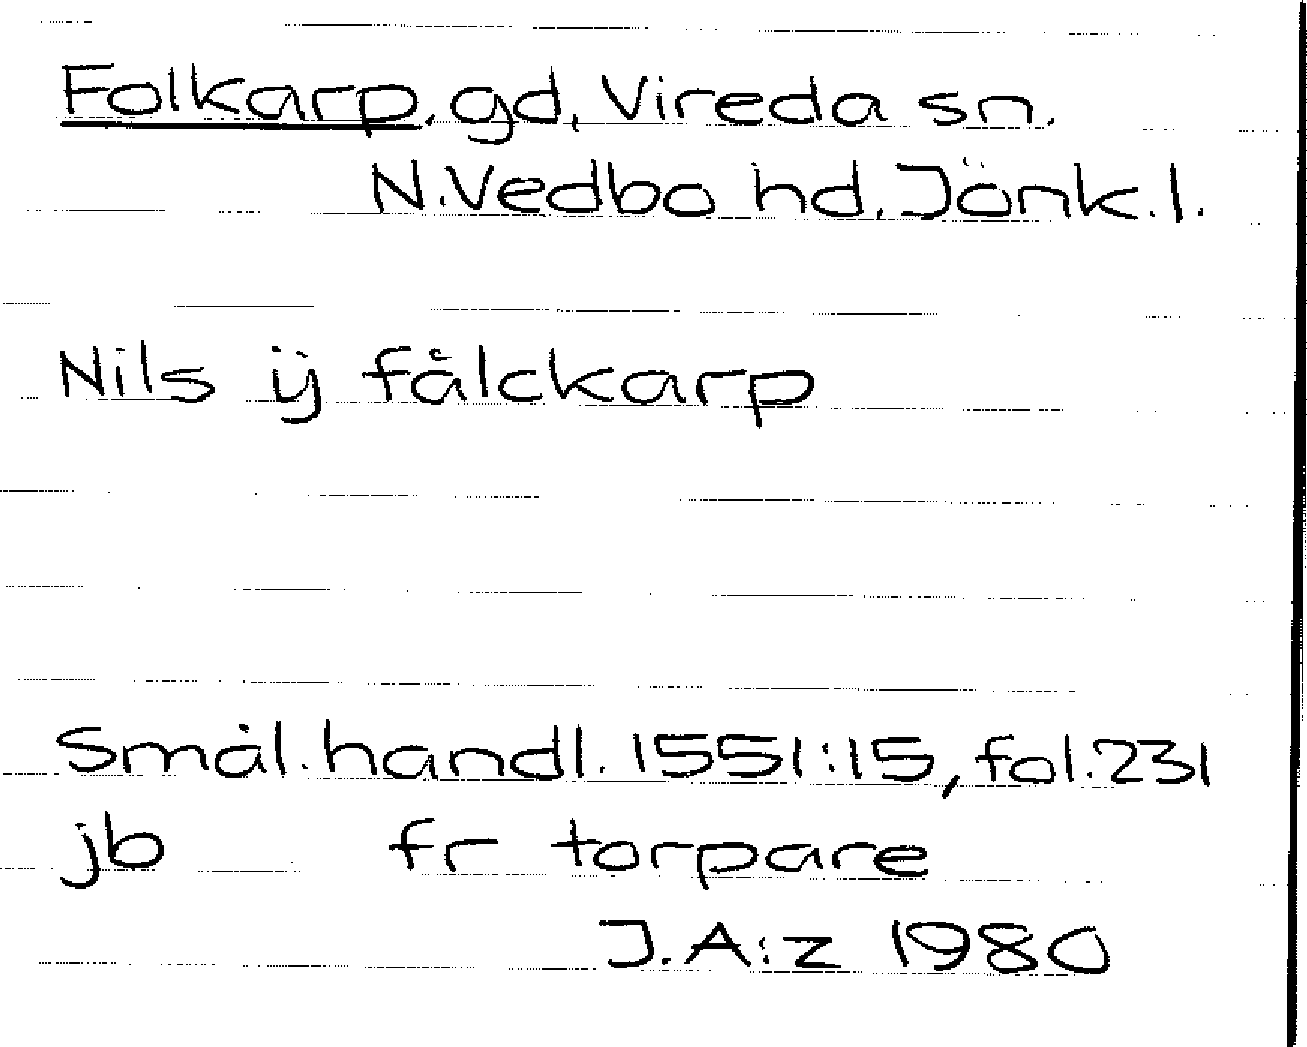 Folkarp, gd, Vireda sn.
N.Vedbo hd, Jönk.l.
Nils ij fålckarp
Smål.handl. 1551:15, fol.231
jb fr torpare
J.A:z 1980